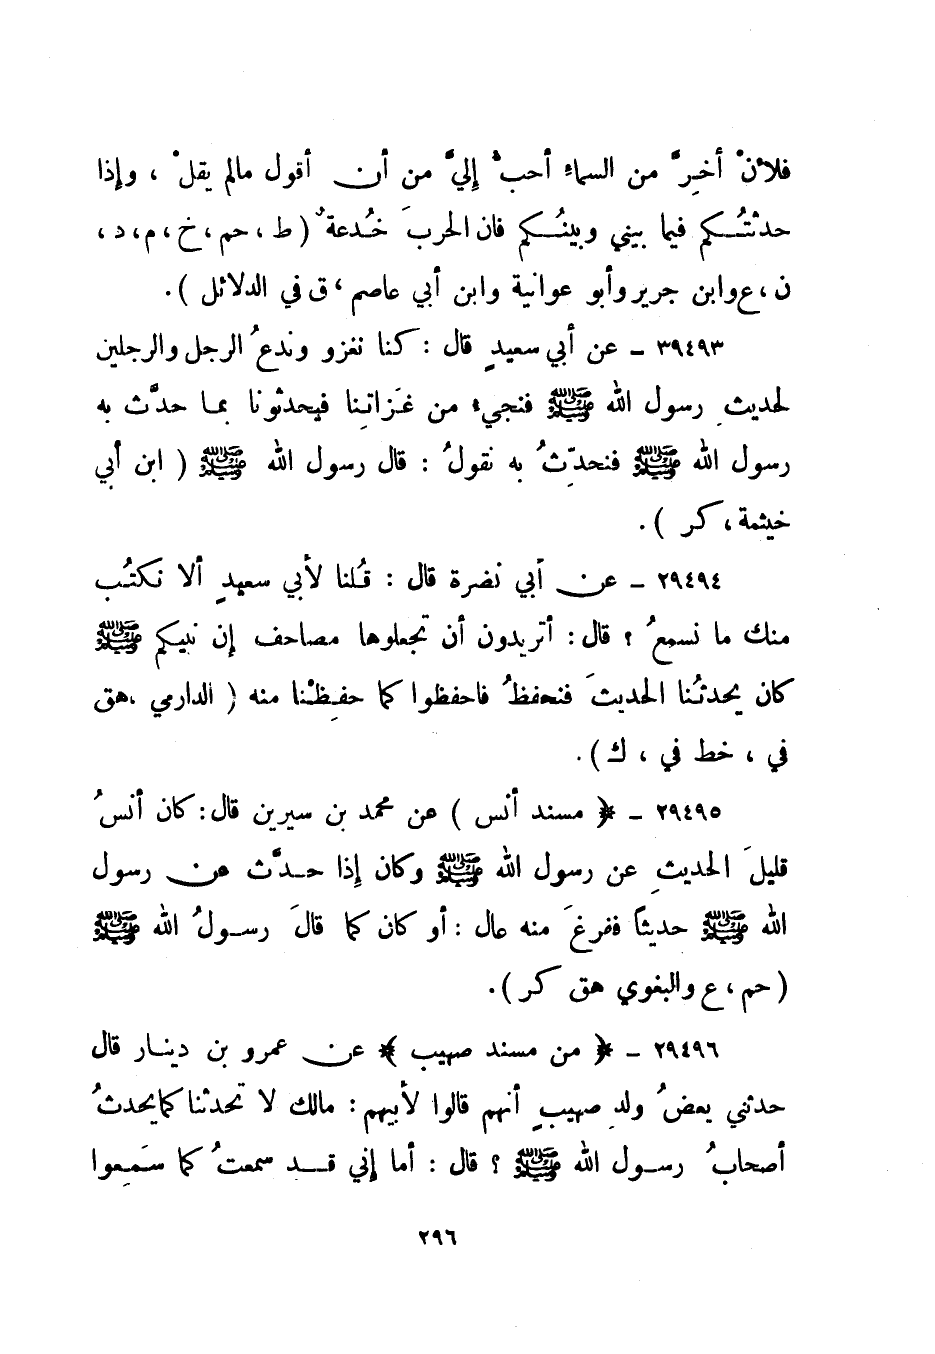 فلأنْ أخِرَّ من السماءِ أحبُّ إليَّ من أن أقول مالم يقلْ ، وإذا
حدثتُكم فيما بيني وبينُكم فان الحربَ خُدعةٌ ( ط ، حم ، خ ، م ، د ،
ن ، ع وابن جرير وأبو عوانية وابن أبي عاصم ، ق في الدلائل ) .
٣٩٤٩٣ - عن أبي سعيدٍ قال : كنا نغزو وندعُ الرجل والرجلين
لحديثِ رسول الله ﷺ فنجيء من غَزاتِنا فيحدثونا بما حدَّث به
رسول الله ﷺ فنحدِّثُ به نقولُ : قال رسول الله ﷺ ( ابن أبي
خيثمة ، كر ) .
٢٩٤٩٤ - عن أبي نضرة قال : قُلنا لأبي سعيدٍ ألا نكتُب
منك ما نسمعُ ؟ قال : أتريدون أن تجعلوها مصاحف إن نبيكم ﷺ
كان يحدثُنا الحديثَ فنحفظُ فاحفظوا كما حفِظْنا منه ( الدارمي ، هق
في ، خط في ، ك ) .
٢٩٤٩٥ - ﴿ مسند أنس ) عن محمد بن سيرين قال : كان أنسُ
قليلَ الحديثِ عن رسول الله ﷺ وكان إذا حدَّث عن رسول
الله ﷺ حديثاً ففرغَ منه عال : أو كان كما قالَ رسولُ الله ﷺ
( حم ، ع والبغوي هق كر ) .
٢٩٤٩٦ - ﴿ من مسند صهيب ﴾ عن عمرو بن دينار قال
حدثني بعضُ ولدِ صهيبٍ أنهم قالوا لأبيهم : مالك لا تحدثنا كما يحدثُ
أصحابُ رسول الله ﷺ ؟ قال : أما إني قد سمعتُ كما سَمِعوا
٢٩٦